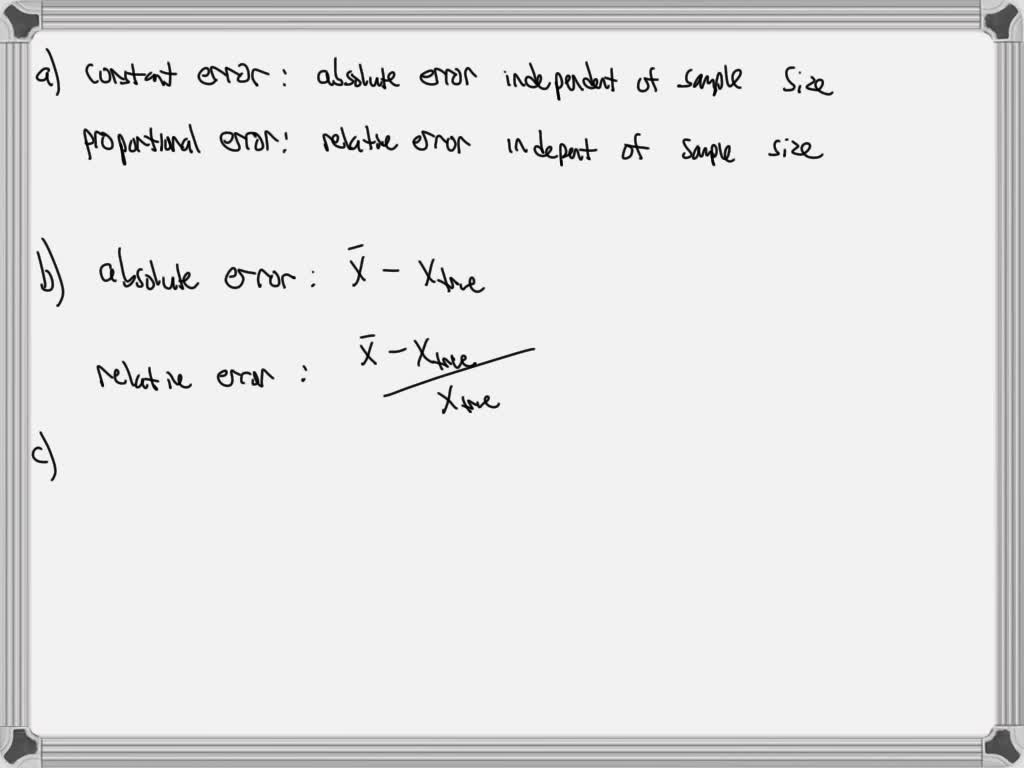 a) constant error: absolute error independent of sample size
proportional error: relative error indepent of sample size
b) absolute error: x̄ - x_true
relative error: x̄ - x_true / x_true
c)